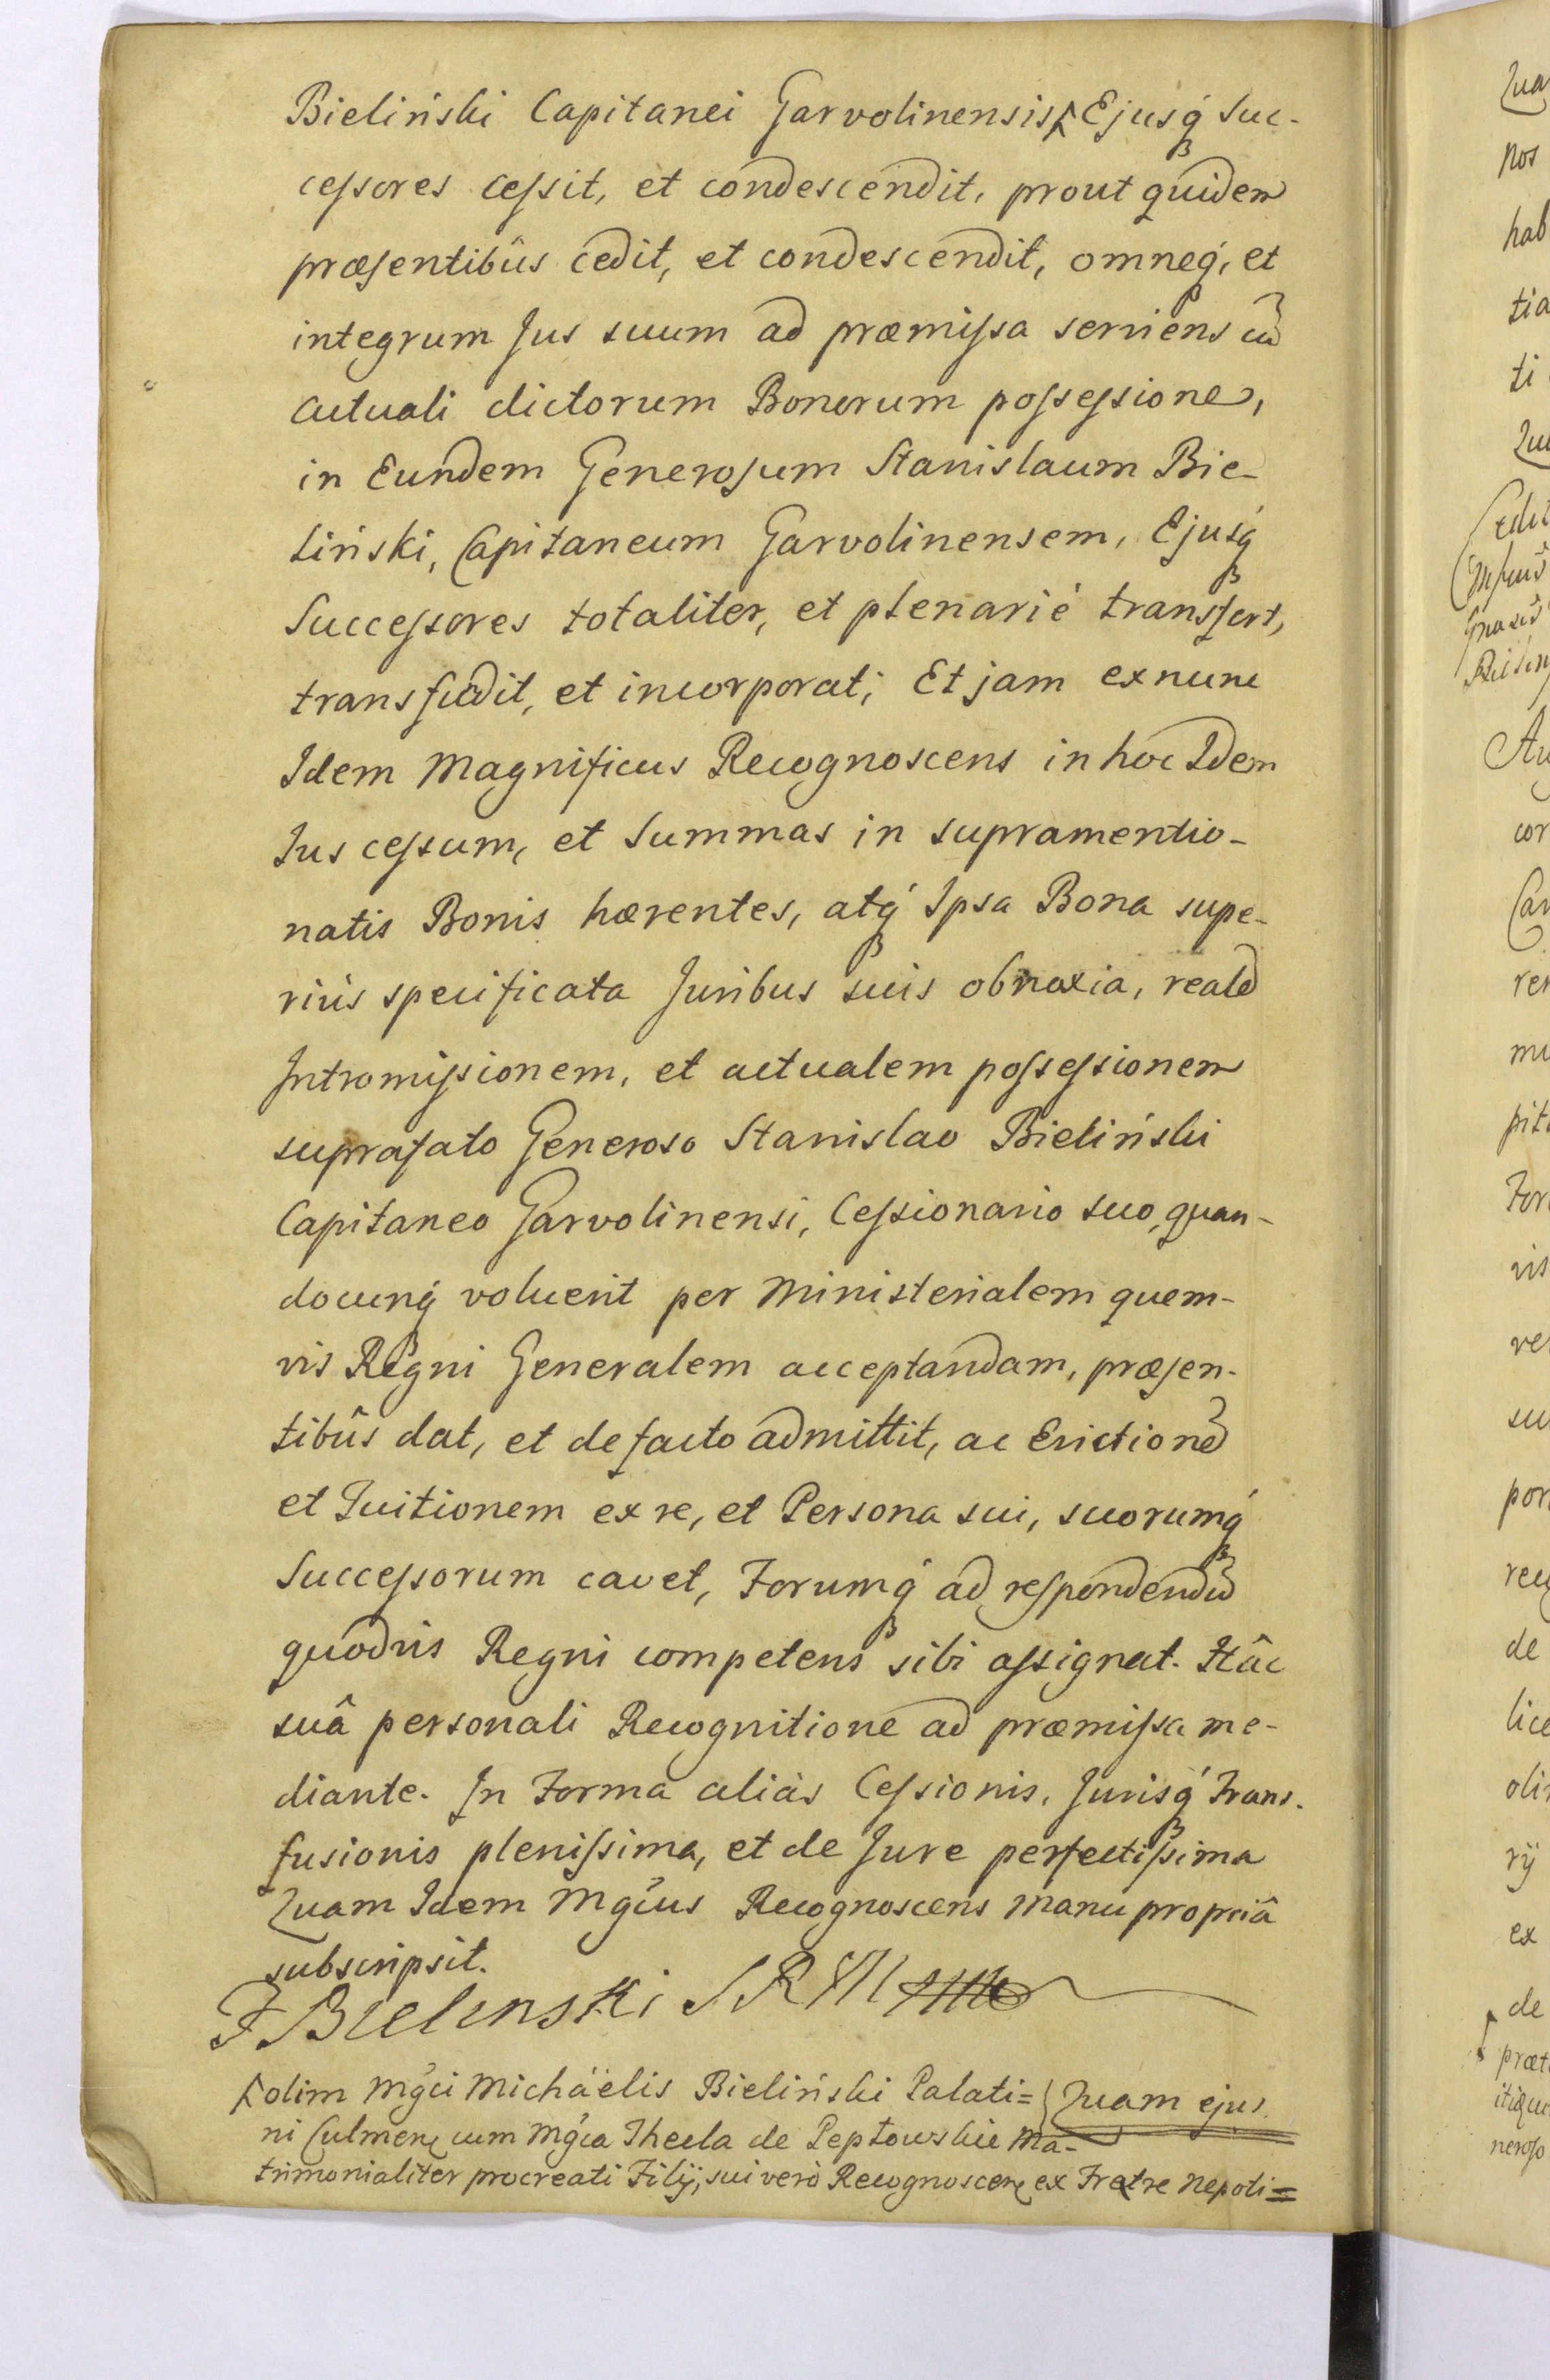 Bieliński Capitanei Garvolinensis Ejusq́ Suc-
cessores cessit, et condescendit, prout quidem
præsentibûs cedit, et condescendit, omneq́, et
integrum Jus suum ad præmissa serviens cũ
actuali dictorum Bonorum possessione,
in Eundem Generosum Stanislaum Bie-
liński, Capitaneum Garvolinensem, Ejusq́
Successores totaliter, et plenariè transfert,
transfudit, et incorporat; Et jam ex nunc
Idem Magnificus Recognoscens in hoc Idem
Jus cessum, et Summas in supramentio-
natis Bonis hærentes, atq́ Ipsa Bona supe-
riùs specificata Juribus suis obnoxia, realẽ
Intromissionem, et actualem possessionem
suprafato Generoso Stanislao Bieliński
Capitaneo Garvolinensi, Cessionario suo, quan-
docunq́ voluerit per Ministerialem quem-
vis Regni Generalem acceptandam, præsen-
tibûs dat, et de facto admittit, ac Evictionẽ
et Tuitionem ex re, et Persona sui, suorumq́
Successorum cavet, Forumq́ ad respondendũ
quodvis Regni competens sibi assignat. Hâc
suâ personali Recognitione ad præmissa me-
diante. In Forma aliàs Cessionis, Jurisq́ Trans-
fusionis plenissima, et de Jure perfectissima
Quam Idem Mgćus Recognoscens manu propriâ
subscripsit.
F Bielinski
olim Mgći Michäelis Bieliński Palati=
ni Culmens̃ cum Mgća Thecla de Peptowskie Ma-
trimonialiter procreati Filij, sui verò Recognoscens̃ ex Fratre Nepoti=
Quam ejus